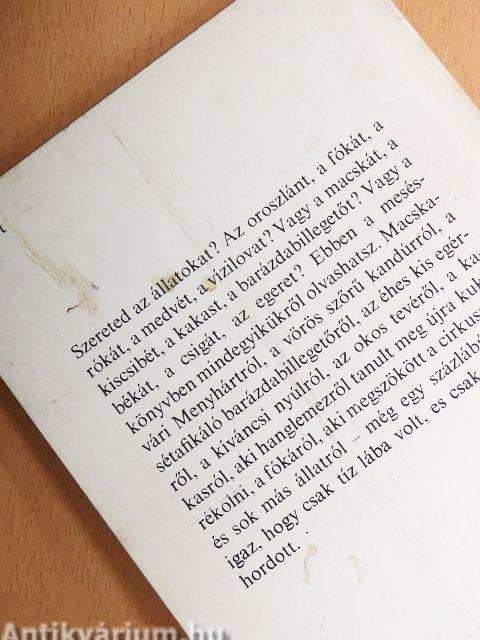 Szereted az állatokat? Az oroszlánt, a fókát, a
rókát, a medvét, a vízilovat? Vagy a macskát, a
kiscsibét, a kakast, a barázdabillegetőt? Vagy a
békát, a csigát, az egeret? Ebben a mesés-
könyvben mindegyikükről olvashatsz. Macska-
vári Menyhártról, a vörös szőrű kandúrról, a
sétafikáló barázdabillegetőről, az éhes kis egér-
ről, a kíváncsi nyúlról, az okos tevéről, a ka-
kasról, aki hanglemezről tanult meg újra kuk
rékolni, a fókáról, aki megszökött a cirkus
és sok más állatról – még egy százlább
igaz, hogy csak tíz lába volt, es csak
hordott.
Antikvárium.hu